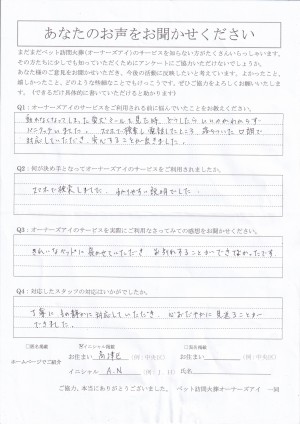 あなたのお声をお聞かせください
まだまだペット訪問火葬(オーナーズアイ)のサービスを知らない方がたくさんいらっしゃいます。
その方たちに少しでも知っていただくためにアンケートにご協力いただけないでしょうか。
あなた様のご意見をお聞かせいただき、今後の活動に反映したいと考えています。よかったこと、
嬉しかったこと、どのような些細なことでもけっこうです。ぜひご協力をよろしくお願いいたします。
(できるだけ具体的に書いていただけると助かります)
Q1:オーナーズアイのサービスをご利用される前に悩んでいたことをお教えください。
動かなくなってしまった
を見た時、どうしたらいいかわからず
パニックでいました。スマホで検索し電話したところ、落ちついた口調で
対応していただき、安心することが出来ました。
Q2:何が決め手となってオーナーズアイのサービスをご利用されましたか。
スマホで検索しました。わかりやすい説明でした。
Q3:オーナーズアイのサービスを実際にご利用なさってみての感想をお聞かせください。
きれいなベッドに寝かせていただき お別れすることができてよかったです。
Q4:対応したスタッフの対応はいかがでしたか。
丁寧に もの静かに対応していただき、心おだやかに見送ることが
できました。
□匿名掲載 イニシャル掲載 □実名掲載
ホームページでご紹介 お住まい 高津区 (例:中央区) お住まい (例:中央区)
イニシャル A.N (例:I.H) 氏名
ご協力、本当にありがとうございました。 ペット訪問火葬オーナーズアイ 一同